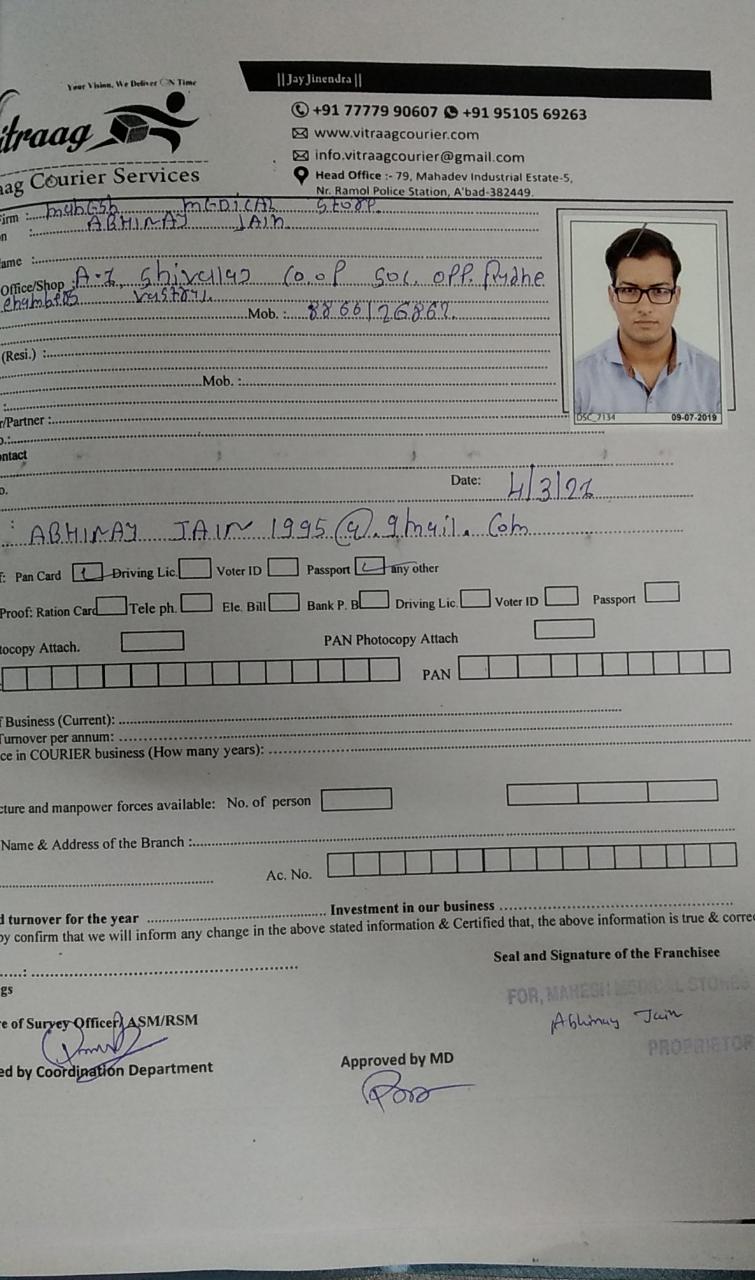 Your Vision, We Deliver ON Time
|| Jay Jinendra ||
+91 77779 90607 +91 95105 69263
itraag
www.vitraagcourier.com
info.vitraagcourier@gmail.com
aag Courier Services
Head Office :- 79, Mahadev Industrial Estate-5,
Nr. Ramol Police Station, A'bad-382449.
Firm : MEDICAL
n : ABHINAY JAIN
ame :
Office/Shop : A-1, Co.op Soc. opp.
chambers
Mob. : 8866126867.
(Resi.) :
Mob. :
r/Partner :
o.:
DSC_7134 09-07-2019
ontact
o. Date: 4/3/21
: ABHINAY JAIN 1995@.gmail.com
f: Pan Card Driving Lic. Voter ID Passport any other
Proof: Ration Card Tele ph. Ele. Bill Bank P. B Driving Lic. Voter ID Passport
tocopy Attach. PAN Photocopy Attach
PAN
f Business (Current):
Turnover per annum:
ce in COURIER business (How many years):
cture and manpower forces available: No. of person
Name & Address of the Branch :
Ac. No.
d turnover for the year Investment in our business
by confirm that we will inform any change in the above stated information & Certified that, the above information is true & corre
Seal and Signature of the Franchisee
gs
FOR, MAHESH MEDICAL STORES
re of Survey Officer/ASM/RSM
Abhinay Jain
PROPRIETOR
ed by Coordination Department
Approved by MD